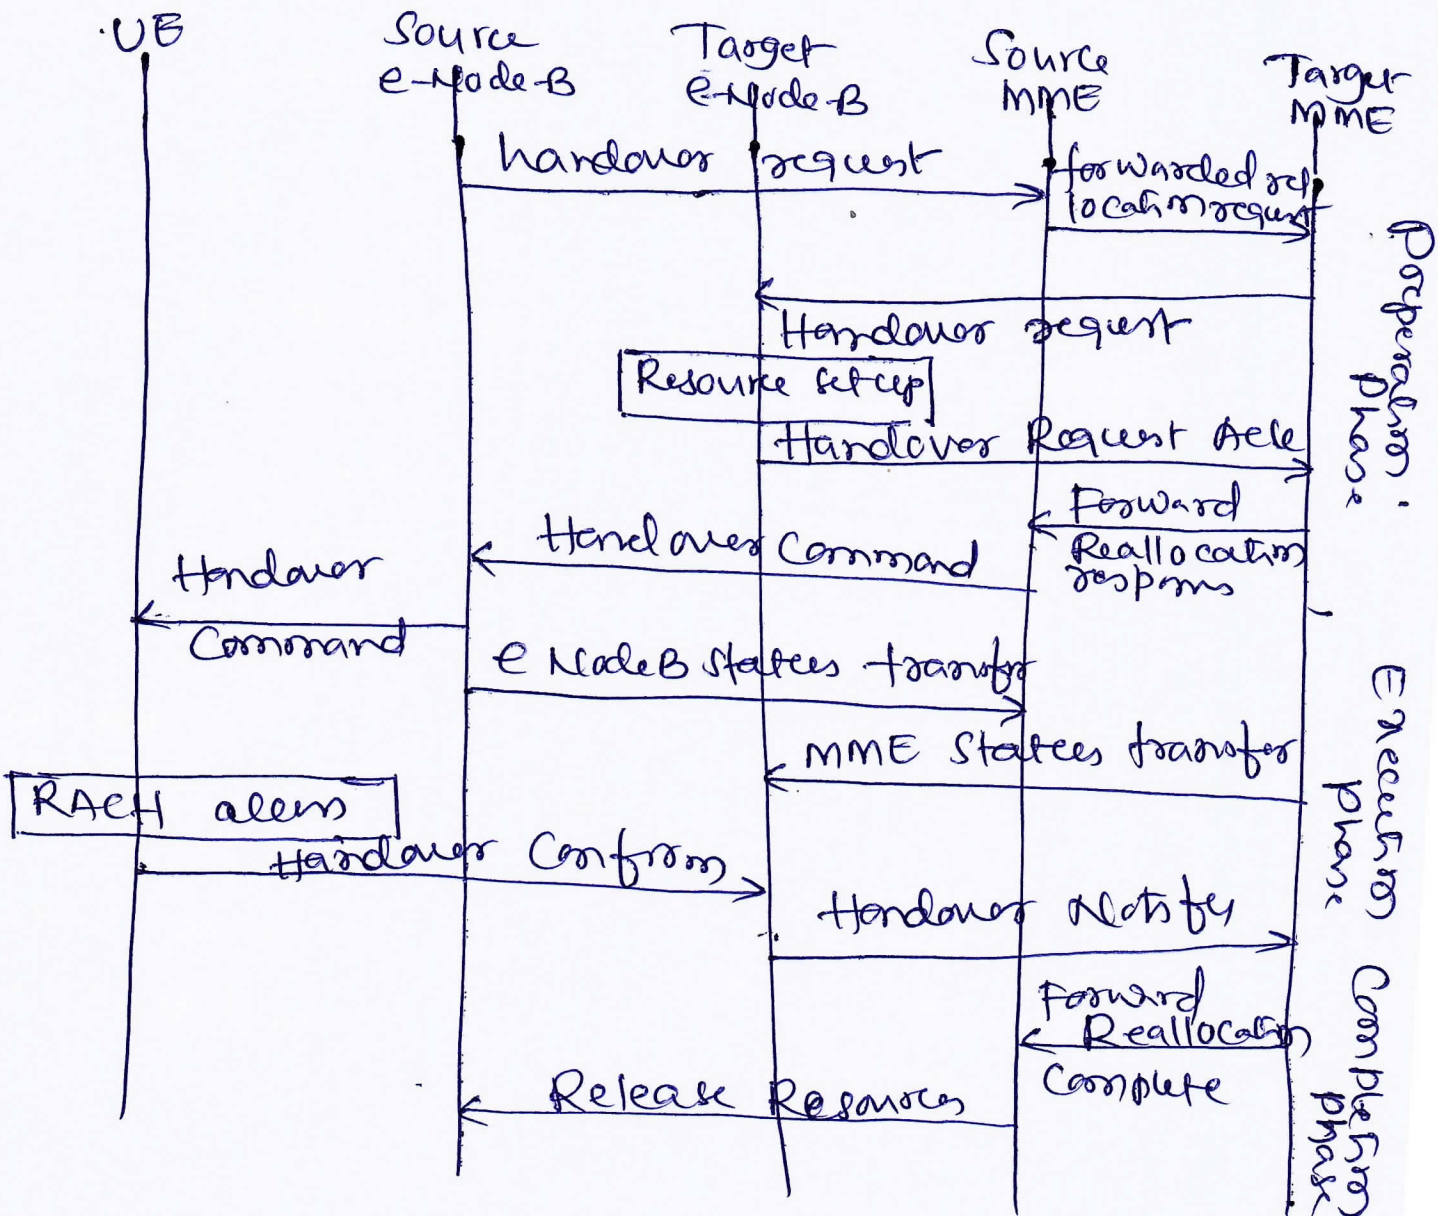 UE
Source
e-Node-B
Target
e-Node-B
Source
MME
Target
MME
handover request
forwarded rel
location request
Handover request
Resource setup
Handover Request Ack
Forward
Reallocation
respons
Handover Command
Handover
Command
e NodeB States transfer
MME States transfer
RACH access
Handover Confirm
Handover Notify
Forward
Reallocation
Complete
Release Resources
Preperation
Phase
Execution
phase
Completion
phase